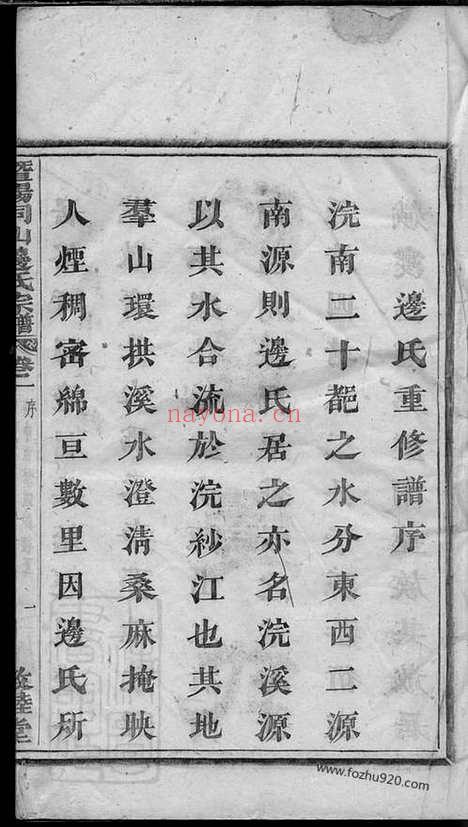 邊氏重修譜序
浣南二十都之水分東西二源
南源則邊氏居之亦名浣溪源
以其水合流於浣紗江也其地
羣山環拱溪水澄清桑麻掩映
人煙稠密綿亘數里因邊氏所
暨陽同山邊氏宗譜 卷一 序 一 敦睦堂
nayona.cn
www.fozhu920.com